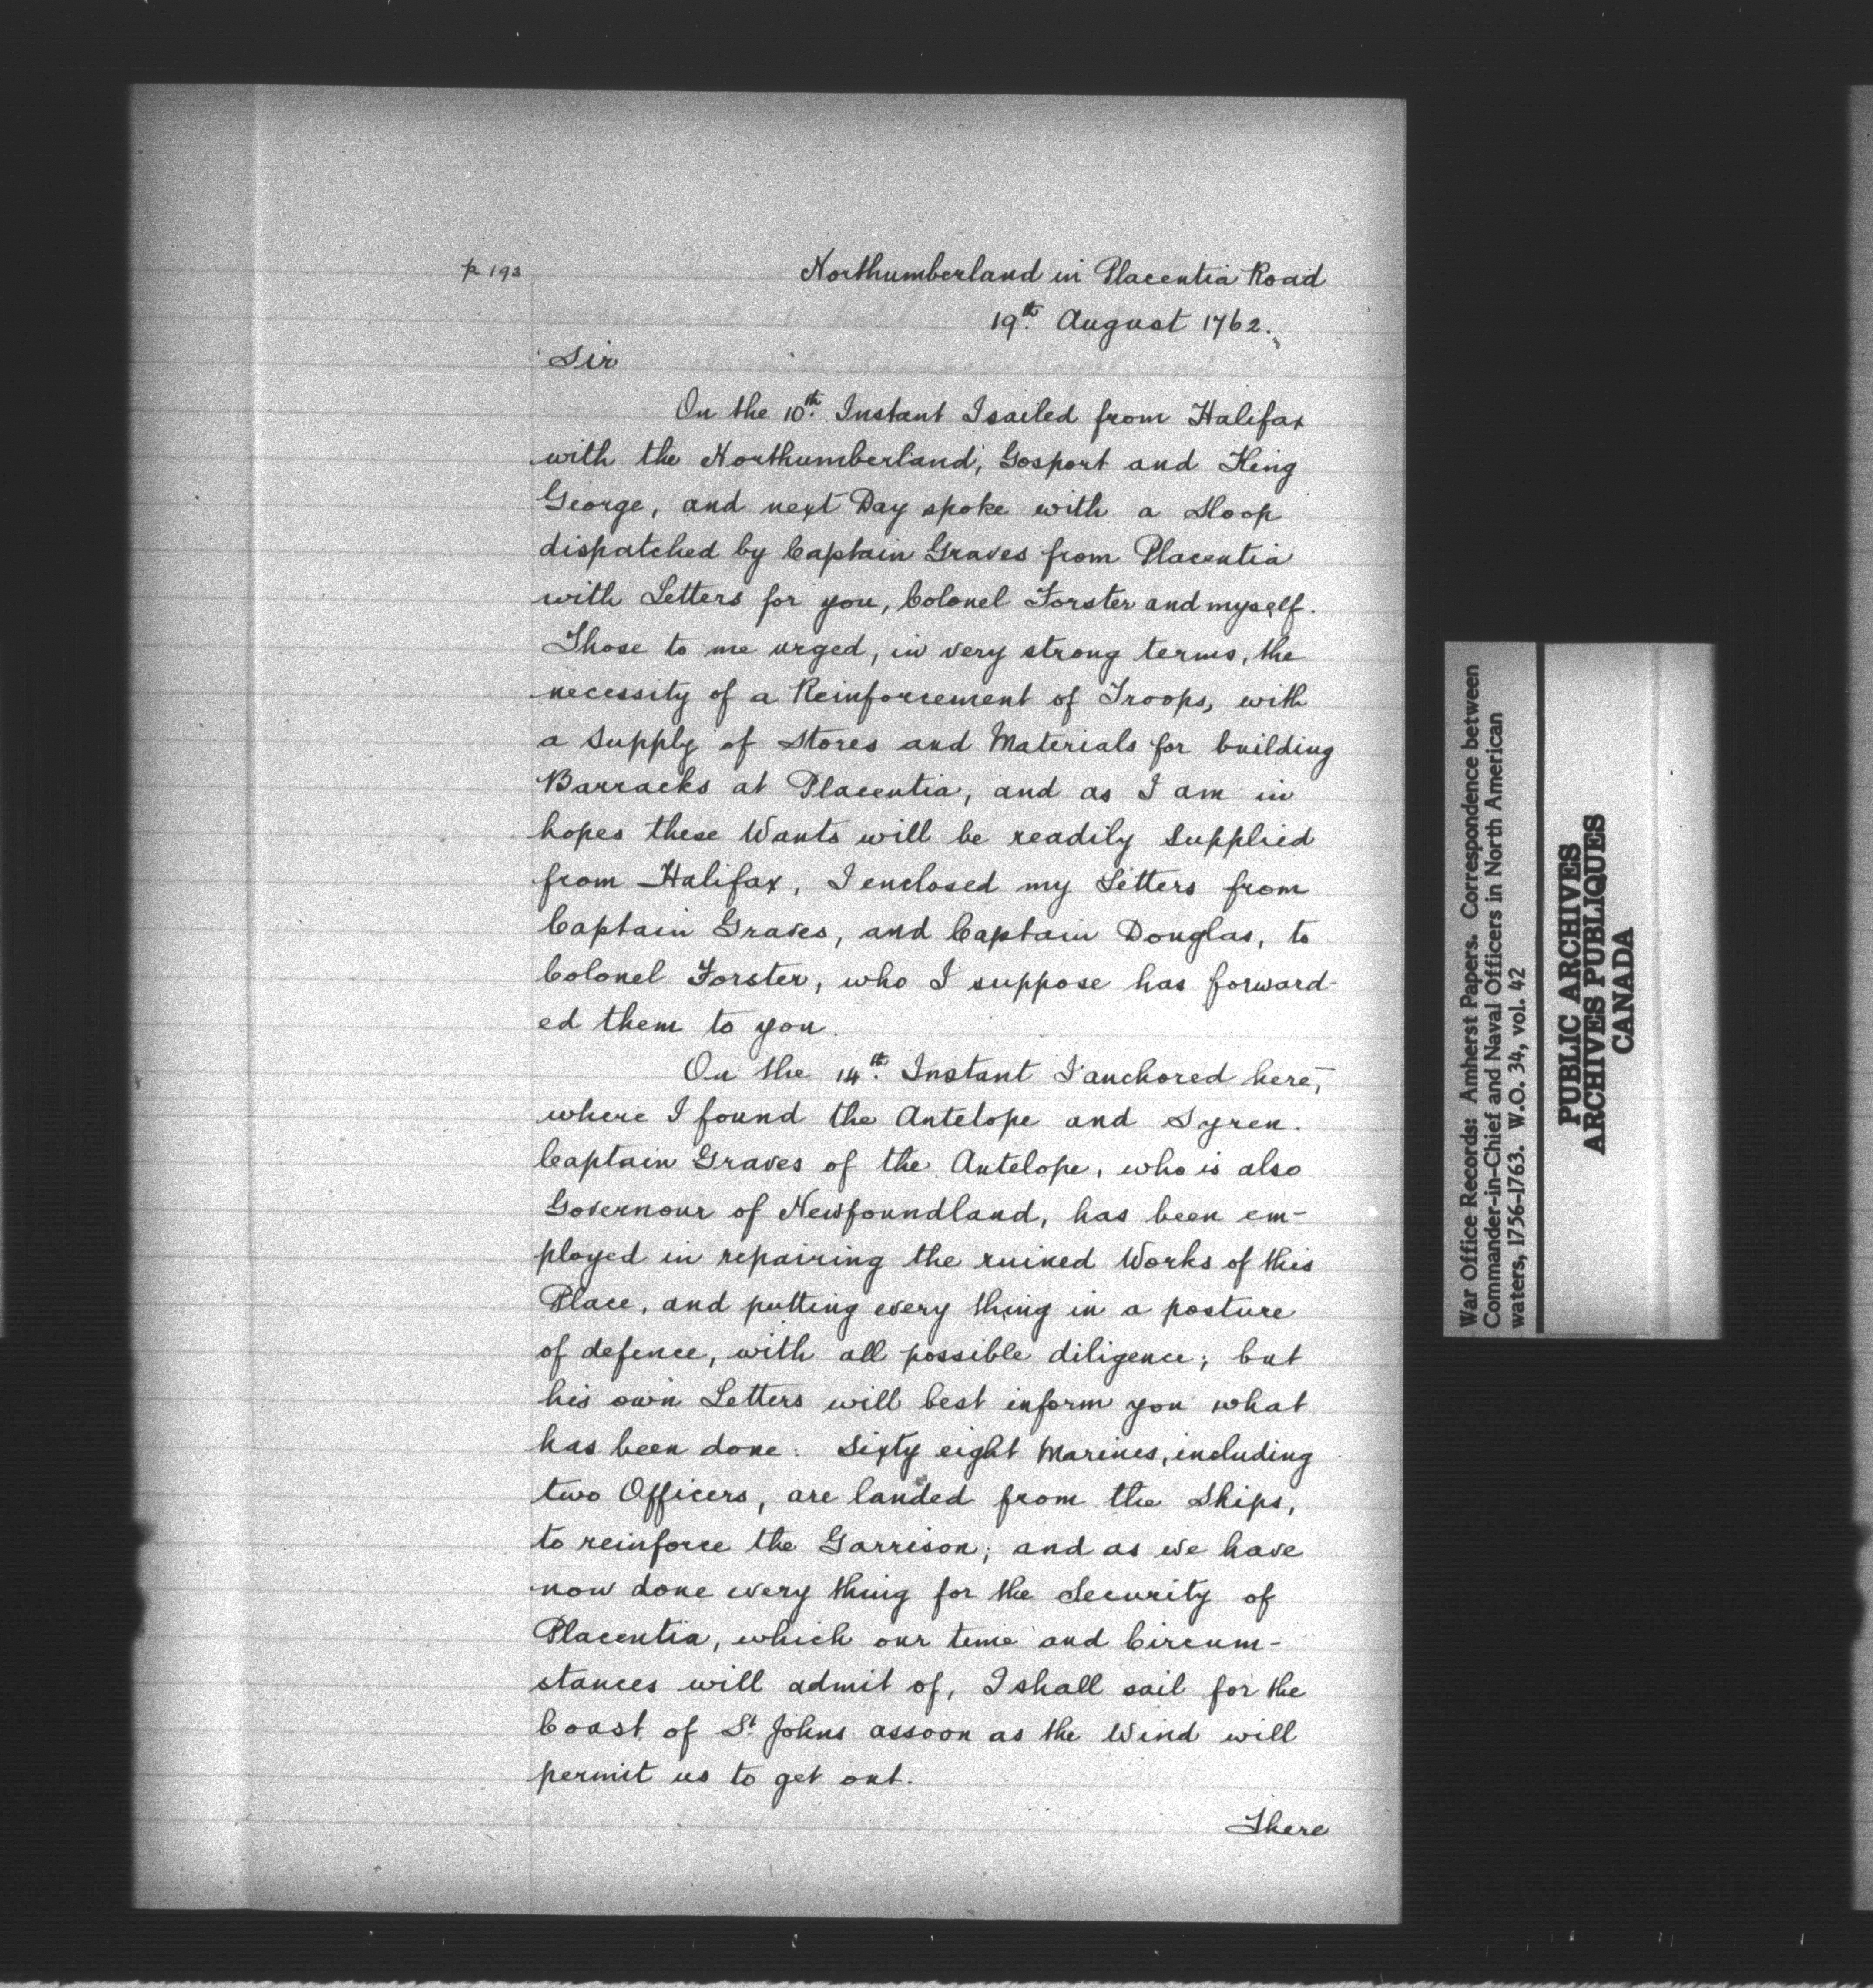 p 193
Northumberland in Placentia Road
19th. August 1762.
Sir
On the 10th. Instant I sailed from Halifax
with the Northumberland, Gosport and King
George, and next Day spoke with a Sloop
dispatched by Captain Graves from Placentia
with Letters for you, Colonel Forster and myself.
Those to me urged, in very strong terms, the
necessity of a Reinforcement of Troops, with
a Supply of Stores and Materials for building
Barracks at Placentia, and as I am in
hopes these Wants will be readily Supplied
from Halifax, I enclosed my Letters from
Captain Graves, and Captain Douglas, to
Colonel Forster, who I suppose has forward-
ed them to you.
On the 14th. Instant I anchored here,
where I found the Antelope and Syren.
Captain Graves of the Antelope, who is also
Governour of Newfoundland, has been em-
ployed in repairing the ruined Works of this
Place, and putting every thing in a posture
of defence, with all possible diligence; but
his own Letters will best inform you what
has been done. Sixty eight Marines, including
two Officers, are landed from the Ships,
to reinforce the Garrison; and as we have
now done every thing for the Security of
Placentia, which our time and Circum-
stances will admit of, I shall sail for the
Coast of St. Johns assoon as the Wind will
permit us to get out.
There
War Office Records: Amherst Papers. Correspondence between
Commander-in-Chief and Naval Officers in North American
waters, 1756-1763. W.O. 34, vol. 42
PUBLIC ARCHIVES
ARCHIVES PUBLIQUES
CANADA